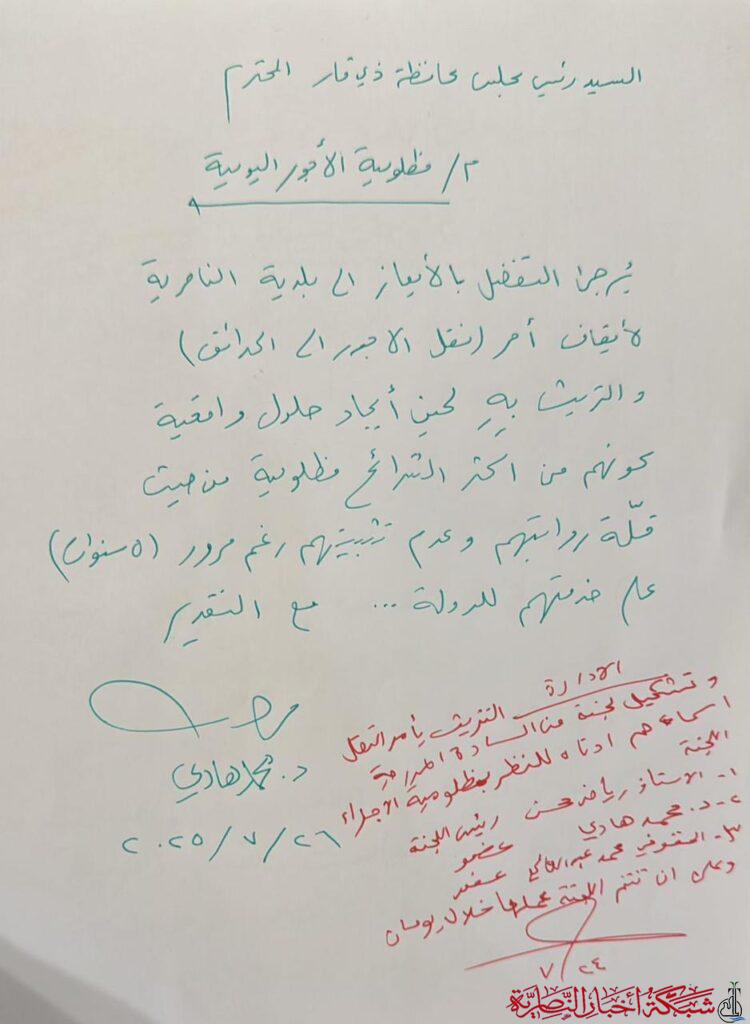 السيد رئيس مجلس محافظة ذي قار المحترم
م/ مظلومية الأجور اليومية
يُرجى التفضل بالأيعاز الى بلدية الناصرية
لأيقاف أمر (نقل الاجور الى الحدائق)
والتريث بهِ لحين أيجاد حلول واقعية
كونهم من اكثر الشرائح مظلومية من حيث
قلّة رواتبهم وعدم تثبيتهم رغم مرور (٥ سنوات)
على خدمتهم للدولة ... مع التقدير
د. محمد هادي
٢٠٢٥/٧/٢٦
الادارة
التريث بأمر النقل
وتشكيل لجنة من السادة المدرجة
اسماءهم ادناه للنظر بمظلومية الاجراء
اللجنة
١- الاستاذ رياض محسن رئيس اللجنة
٢- د. محمد هادي عضو
٣- الحقوقي محمد عبد عضو
وعلى ان تنتم اللجنة عملها خلال يومان
٧/٢٤
شبكة أخبار الناصرية